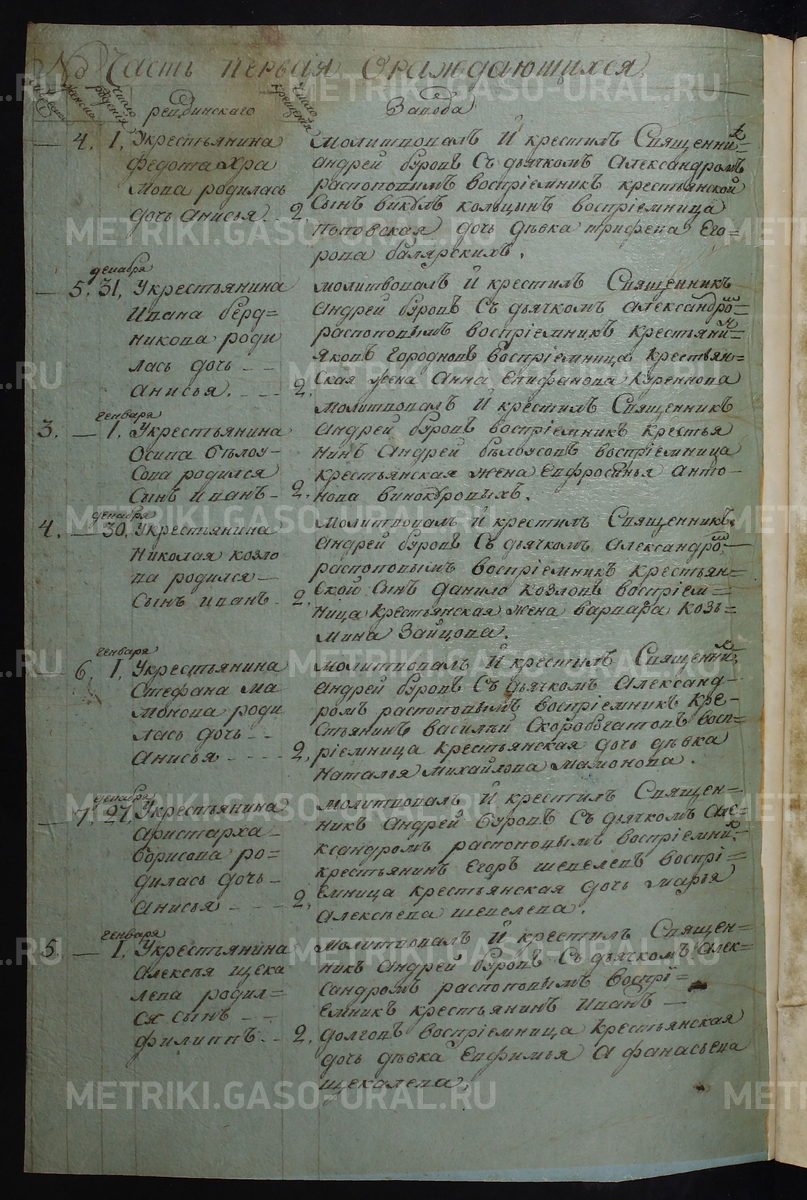 № Часть первая О раждающихся
число рождения
число крещения
ревдинскаго
Завода
4. 1. У крестьянина
Федота Хра
мова родилась
дочь Анисья 2.
молитвовалъ И крестилъ Священникъ
Андрей буровъ Съ дьячкомъ Александромъ
распоповымъ воспріемникъ крестьянской
Сынъ викулъ кольцынъ воспріемница
дочь дѣвка трифена Его=
рова балярскихъ.
декабря
5. 31. У крестьянина
Ивана берд=
никова роди
лась дочь
Анисья. 2.
молитвовалъ И крестилъ Священникъ
Андрей буровъ Съ дьячкомъ Александро=
распоповымъ воспріемникъ Крестьяни=
Яковъ Городновъ воспріемница крестьян=
ская жена Анна Епифанова Куреннова
генваря
3. 1. У крестьянина
Осипа бѣлоу=
сова родился
Сынъ иванъ 2.
молитвовалъ И крестилъ Священникъ
Андрей буровъ воспріемникъ крестья
нинъ Андрей бѣлоусовъ воспріемница
крестьянская жена Евфросинья Анто=
нова винокуровыхъ.
декабря
4. 30. У крестьянина
Николая козло
ва родился
Сынъ иванъ 2.
молитвовалъ И крестилъ Священникъ
Андрей буровъ Съ дьячкомъ Александро
распоповымъ воспріемникъ крестьян=
ской Сынъ данило козловъ воспріем=
ница крестьянская жена варвара Козь=
мина Зайцова.
генваря
6. 1. У крестьянина
Стефана ма
монова роди
лась дочь
Анисья 2.
молитвовалъ И крестилъ Священникъ
Андрей буровъ Съ дьячкомъ Александ=
ромъ распоповымъ воспріемникъ кре=
стьянинъ василий Скоробогатовъ восп=
ріемница крестьянская дочь дѣвка
Наталья Михайлова мамонова.
декабря
7. 27. У крестьянина
Аристарха
борисова ро=
дилась дочь
Анисья 2.
молитвовалъ И крестилъ Священ=
никъ Андрей буровъ Съ дьячкомъ Але=
ксандромъ распоповымъ воспріемни=
крестьянинъ Егоръ шепелевъ воспрі=
емница крестьянская дочь Марья
Алексѣева шепелева.
генваря
5. 1. У крестьянина
Алексѣя щека
лева родил=
ся Сынъ
филиппъ 2.
молитвовалъ И крестилъ Священ=
никъ Андрей буровъ Съ дьячкомъ Алек=
сандромъ распоповымъ воспрі=
емникъ крестьянинъ Иванъ
долговъ воспріемница крестьянская
дочь дѣвка Евфимья Афанасьева
щекалева.
METRIKI.GASO-URAL.RU